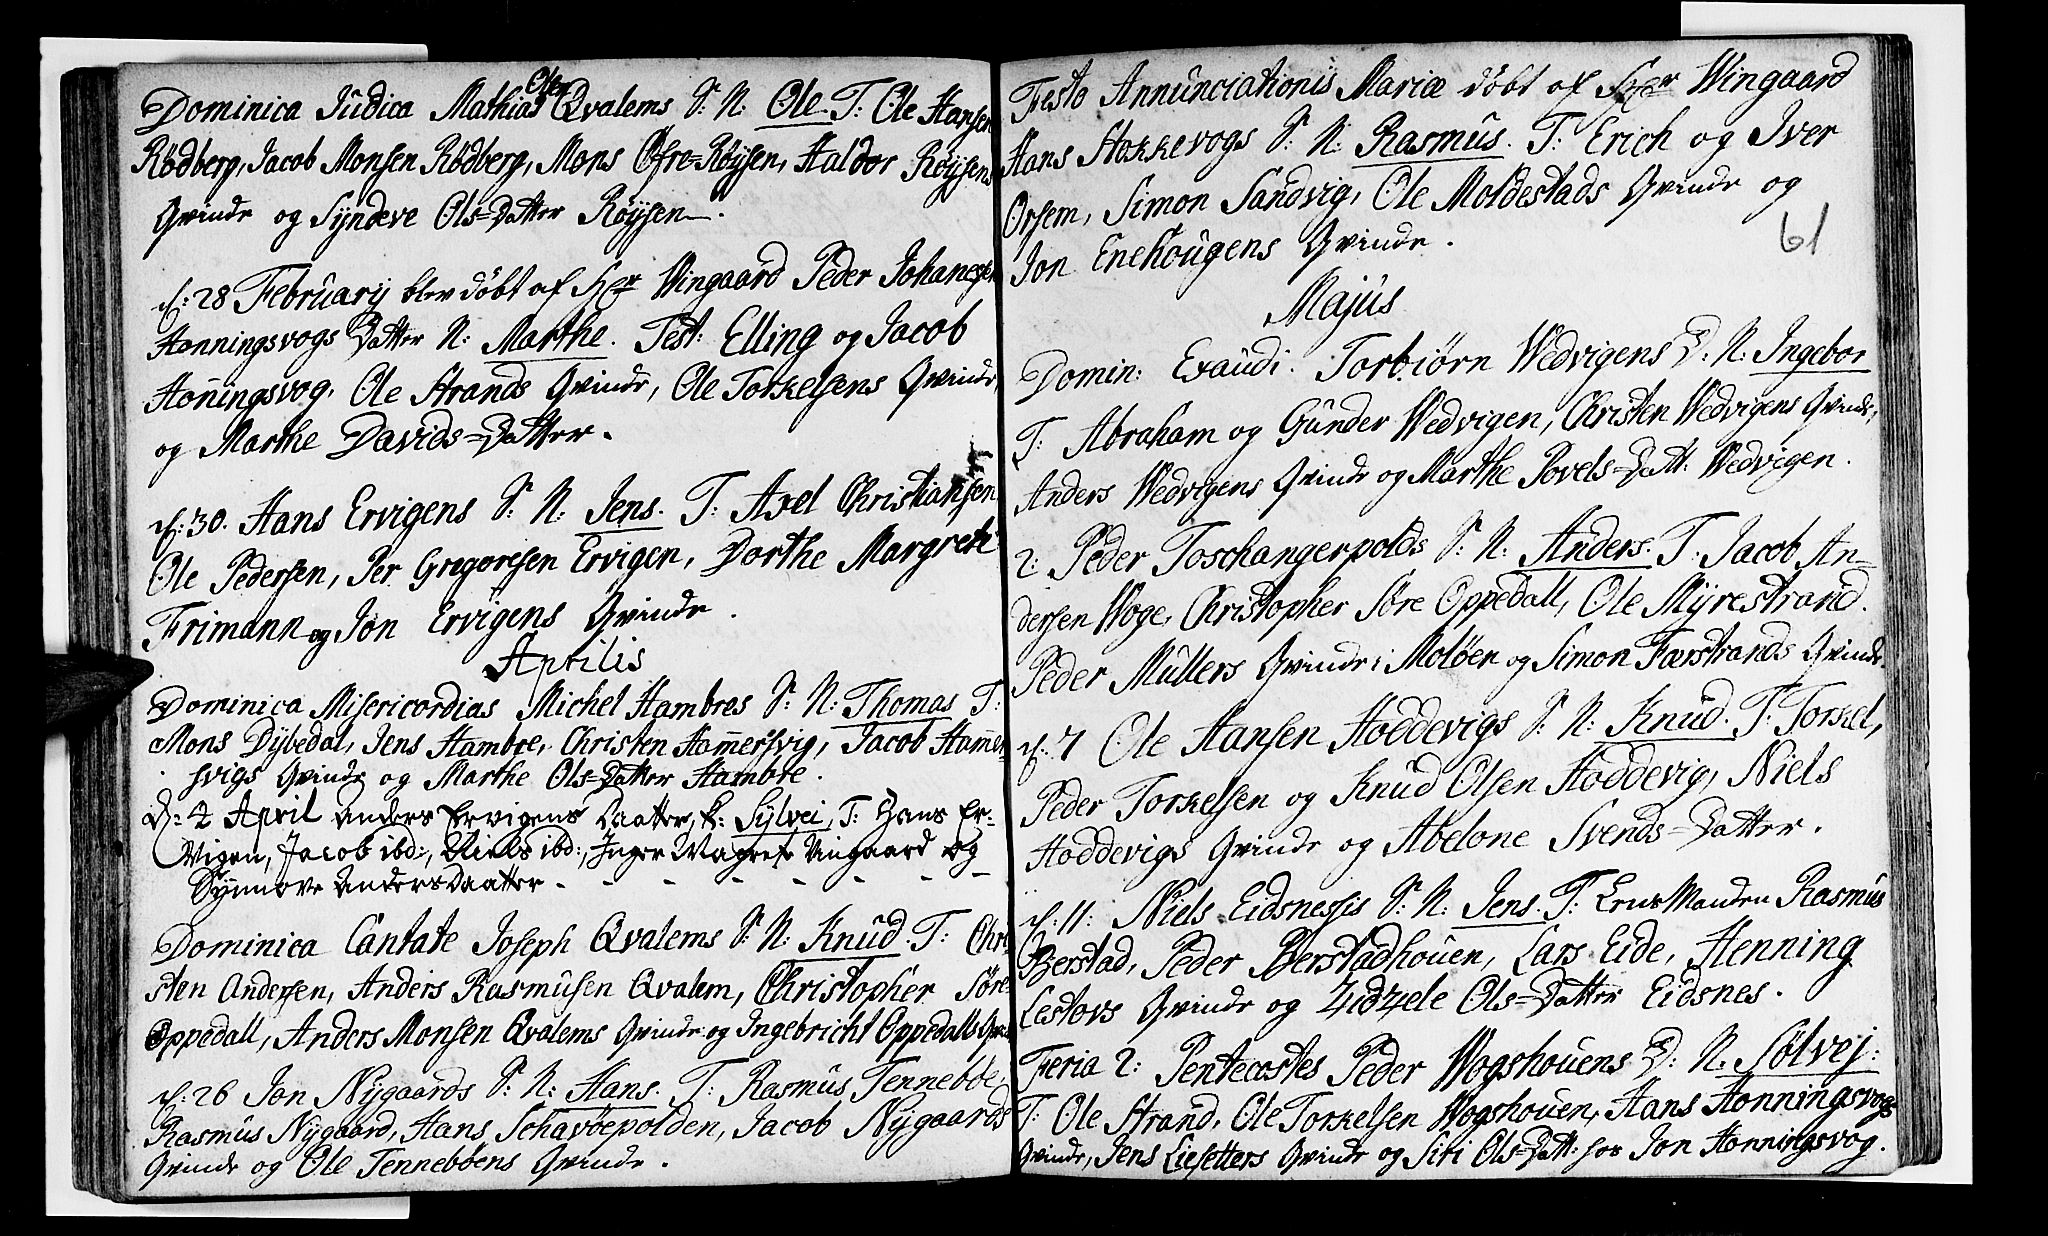 Dominica Judica Mathias Olsen Qvalems S: N: Ole. T: Ole Hansen
Rødberg, Jacob Monsen Rødberg, Mons Øfre-Røysen, Haldor Røysens
Qvinde og Syndeve Ols-Datter Røysen.
d: 28 February blev døbt af Hr Wingaard Peder Johanesen
Honningsvogs Datter N: Marthe. Test: Elling og Jacob
Honningsvog, Ole Strands Qvinde, Ole Torkelsens Qvinde,
og Marthe Davids-Datter.
d: 30. Hans Ervigens S: N: Jens. T: Axel Christiansen
Ole Pedersen, Per Gregoresen Ervigen, Dorthe Margrete
Frimann og Jon Ervigens Qvinde.
Aprilis
Dominica Misericordias Michel Hambres S: N: Thomas T:
Mons Dybedal, Jens Hambre, Christen Hamersvig, Jacob Hamer-
svigs Qvinde og Marthe Ols-Datter Hambre.
D: 4 April Anders Ervigens Daatter, k: Sylvei, T: Hans Er-
vigen, Jacob ibd:, Niels ibd:, Inger Magrete Vingaard og
Synnove Andersdaatter - - - - - - -
Dominica Cantate Joseph Qvalems S: N: Knud. T: Chri
sten Andersen, Anders Rasmusen Qvalem, Christopher Søre
Oppedall, Anders Monsen Qvalems Qvinde og Ingebricht Oppedalls Qvin
d: 26 Jon Nygaards S: N: Hans. T: Rasmus Tenneboe
Rasmus Nygaard, Hans Schavøepolden, Jacob Nygaards
Qvinde og Ole Tennebøens Qvinde.
Festo Annunciationis Mariæ døbt af Hr Wingaard
Hans Stokkevogs S: N: Rasmus. T: Erich og Iver
Orsem, Simon Sandvig, Ole Moldestads Qvinde og
Jon Enehougens Qvinde.
61
Majus
Domin: Exaudi. Torbiørn Wedvigens D: N: Ingebor
T: Abraham og Gunder Wedvigen, Christen Wedvigens Qvinde,
Anders Wedvigens Qvinde og Marthe Povels-Datt: Wedvigen.
2: Peder Toschangerpolds S: N: Anders. T: Jacob An-
dersen Woge, Christopher Søre Oppedall, Ole Myrestrand.
Peder Müllers Qvinde i Moløen og Simon Færstrands Qvinde
d: 7 Ole Hansen Hoddevigs S: N: Knud. T: Torkel,
Peder Torkelsen og Knud Olsen Hoddevig, Niels
Hoddevigs Qvinde og Abelone Svends-Datter.
d: 11: Niels Eidsnessis S: N: Jens. T: Lens Manden Rasmus
Berstad, Peder Berstadhouen, Lars Eide, Henning
Lestovs Qvinde og Zidzele Ols-Datter Eidsnes.
Feria 2: Pentecostes Peder Wogshouens D: N: Sølvej:
T: Ole Strand, Ole Torkelsen Wogshouen, Hans Honningsvogs
Qvinde, Jens Liesetters Qvinde og Siri Ols-Datt: hos Jon Honningsvog.